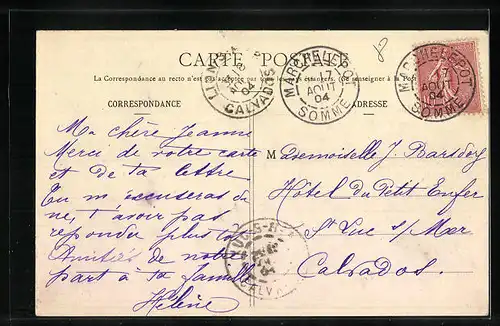 CARTE POSTALE
La Correspondance au recto n'est pas acceptée par tous les pays étrangers. (Se renseigner à la Poste)
LION
AOUT
04
CALVADOS
MARCHELEPOT
17
AOUT
04
SOMME
MARCHELEPOT
17
AOUT
04
SOMME
8
CORRESPONDANCE
ADRESSE
Ma chère Jeanne
Merci de votre carte
et de ta lettre
Tu m'excuseras de
ne t'avoir pas
repondu plus tot
Amitiés de notre
part à ta famille
Hélène
Mademoiselle J. Barsdorf
Hôtel du Petit Enfer
St Luc s/Mer
Calvados.
04